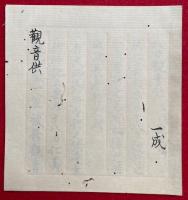 觀音供
一成